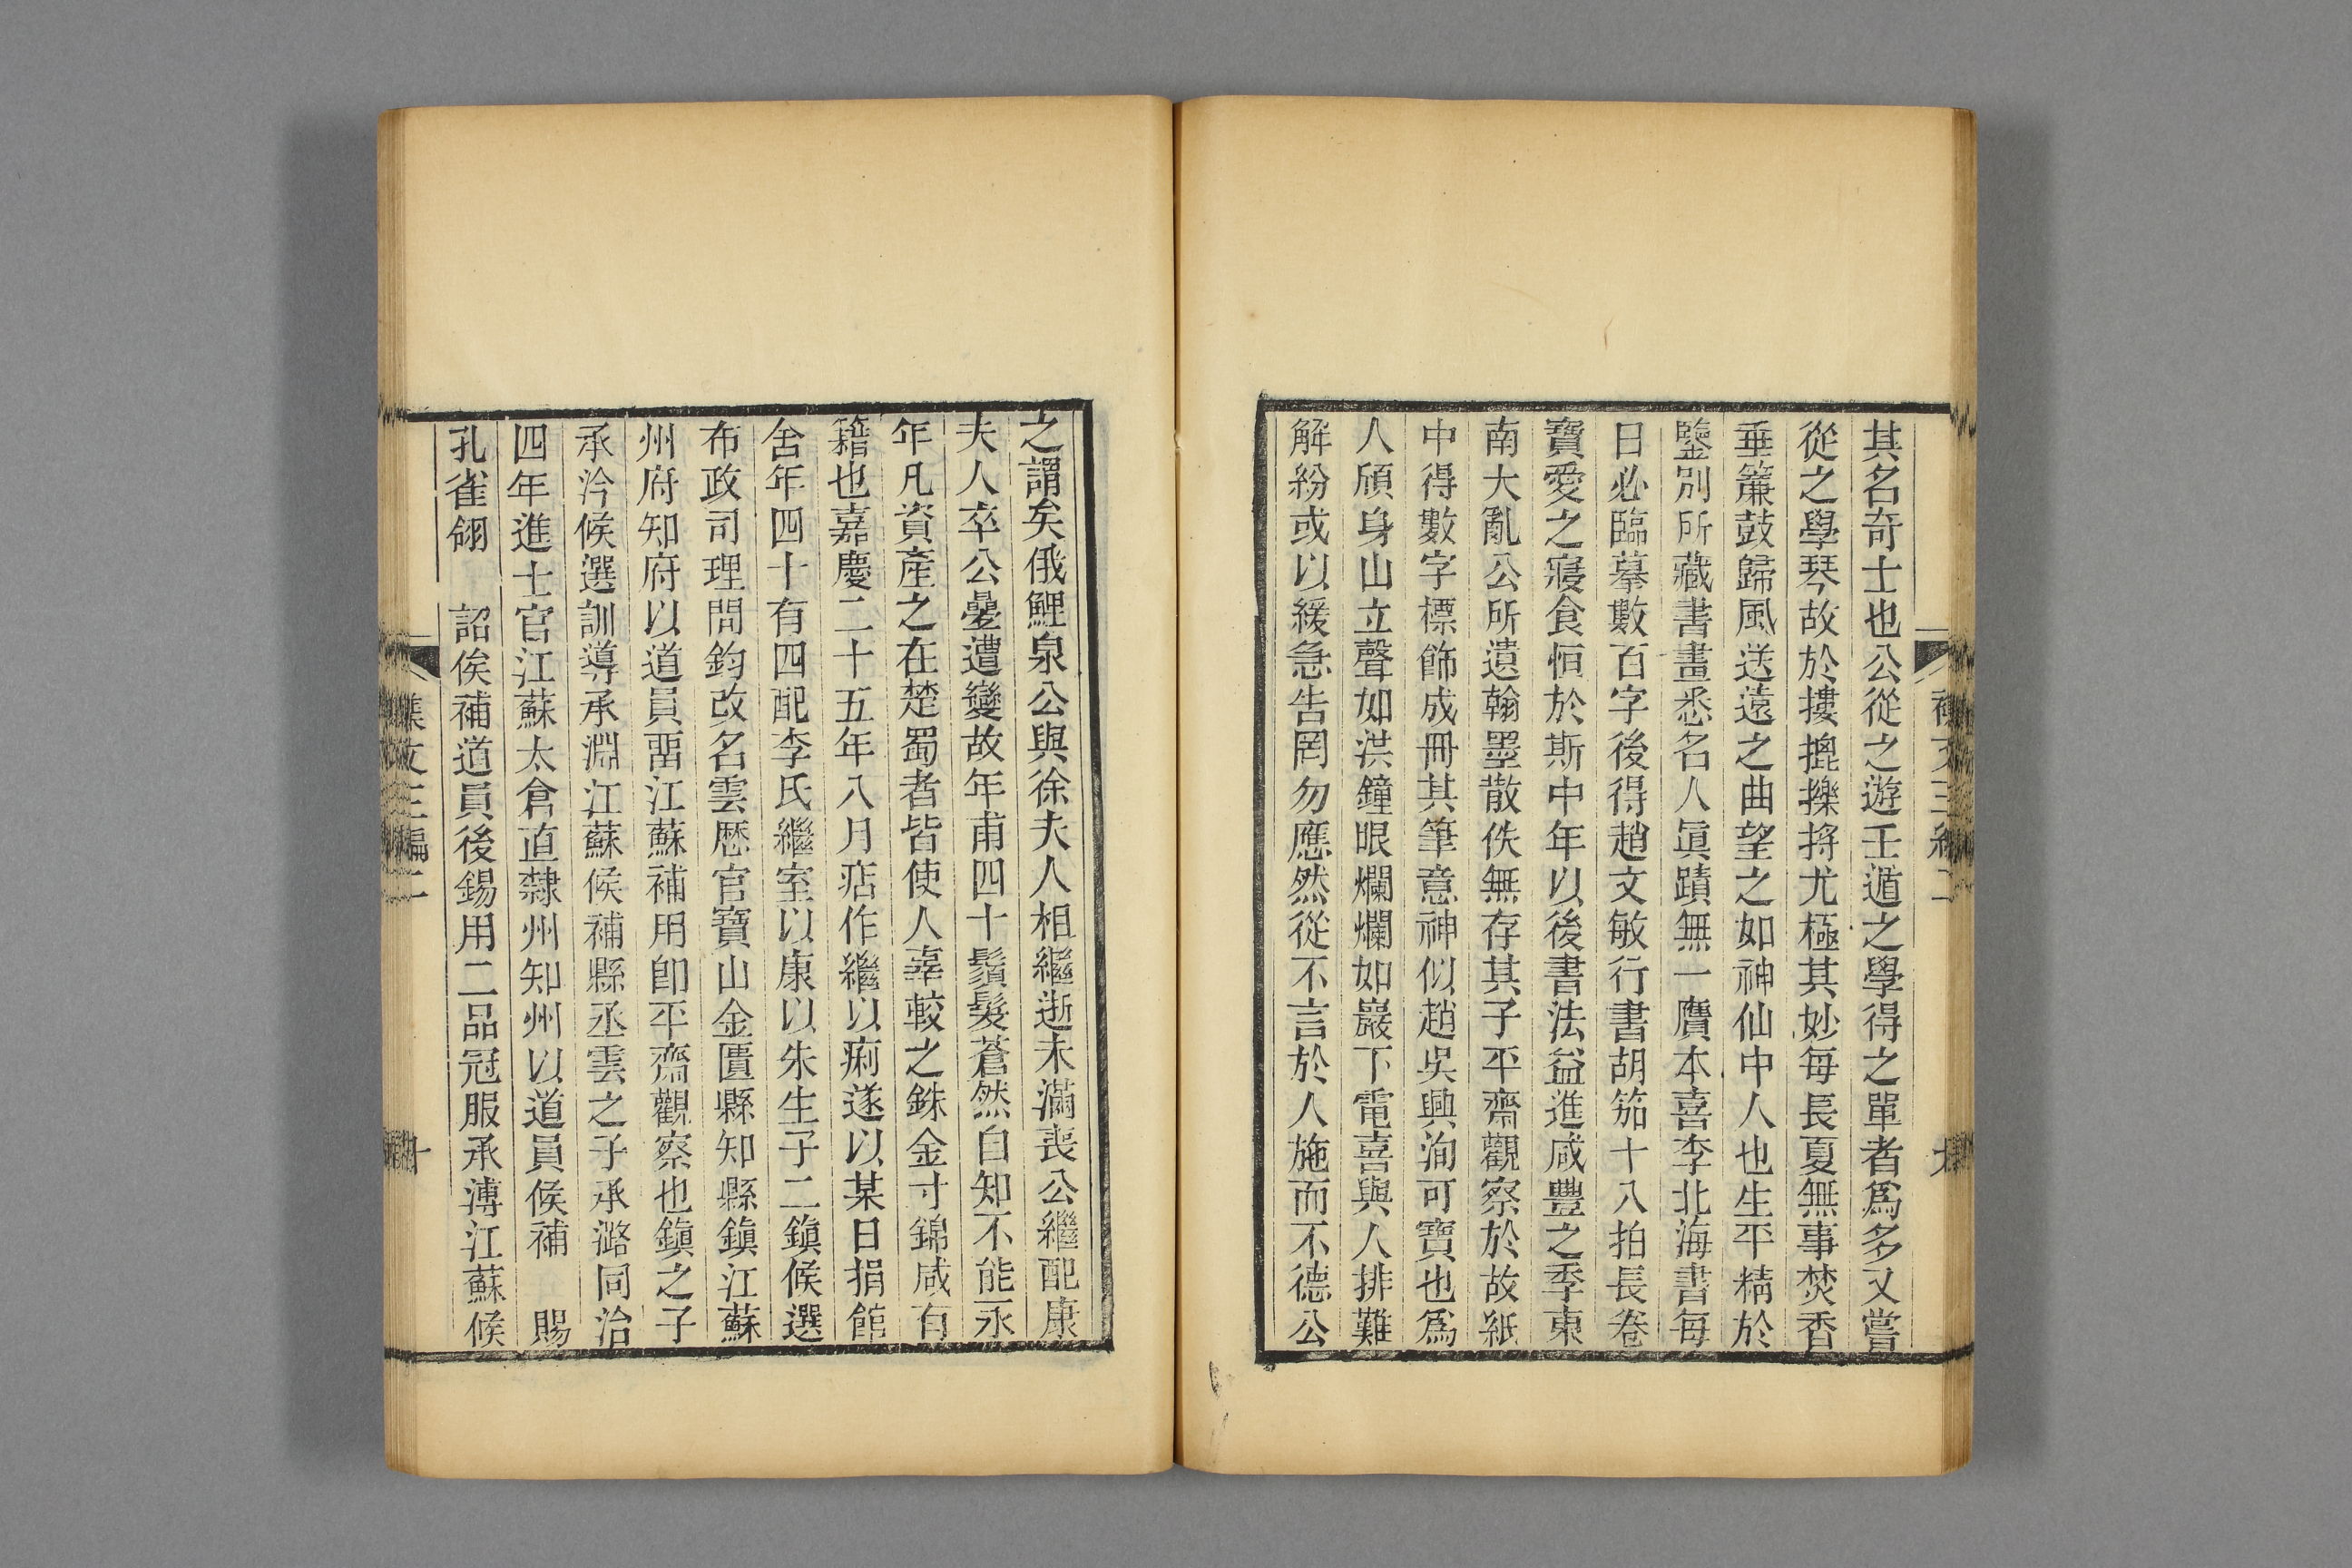 其名奇士也公從之遊壬遁之學得之單者爲多又嘗
從之學琴故於摟摠擽捋尤極其妙每長夏無事焚香
垂簾鼓歸風送遠之曲望之如神仙中人也生平精於
鑒別所藏書畫悉名人眞蹟無一贋本喜李北海書每
日必臨摹數百字後得趙文敏行書胡笳十八拍長卷
寶愛之寢食恒於斯中年以後書法益進咸豐之季東
南大亂公所遺翰墨散佚無存其子平齋觀察於故紙
中得數字標飾成冊其筆意神似趙吳興洵可寶也爲
人頎身山立聲如洪鐘眼爛爛如巖下電喜與人排難
解紛或以緩急告罔勿應然從不言於人施而不德公
之謂矣俄鯉泉公與徐夫人相繼逝未滿喪公繼配康
夫人卒公曡遭變故年甫四十鬚髮蒼然自知不能永
年凡資產之在楚蜀者皆使人辜較之銖金寸錦咸有
籍也嘉慶二十五年八月痁作繼以痢遂以某日捐館
舍年四十有四配李氏繼室以康以朱生子二鎮候選
布政司理問鈞改名雲歷官寶山金匱縣知縣鎮江蘇
州府知府以道員畱江蘇補用卽平齋觀察也鎮之子
承泠候選訓導承淵江蘇候補縣丞雲之子承潞同治
四年進士官江蘇太倉直隸州知州以道員候補 賜
孔雀翎 詔俟補道員後錫用二品冠服承溥江蘇候
集文三編二 十